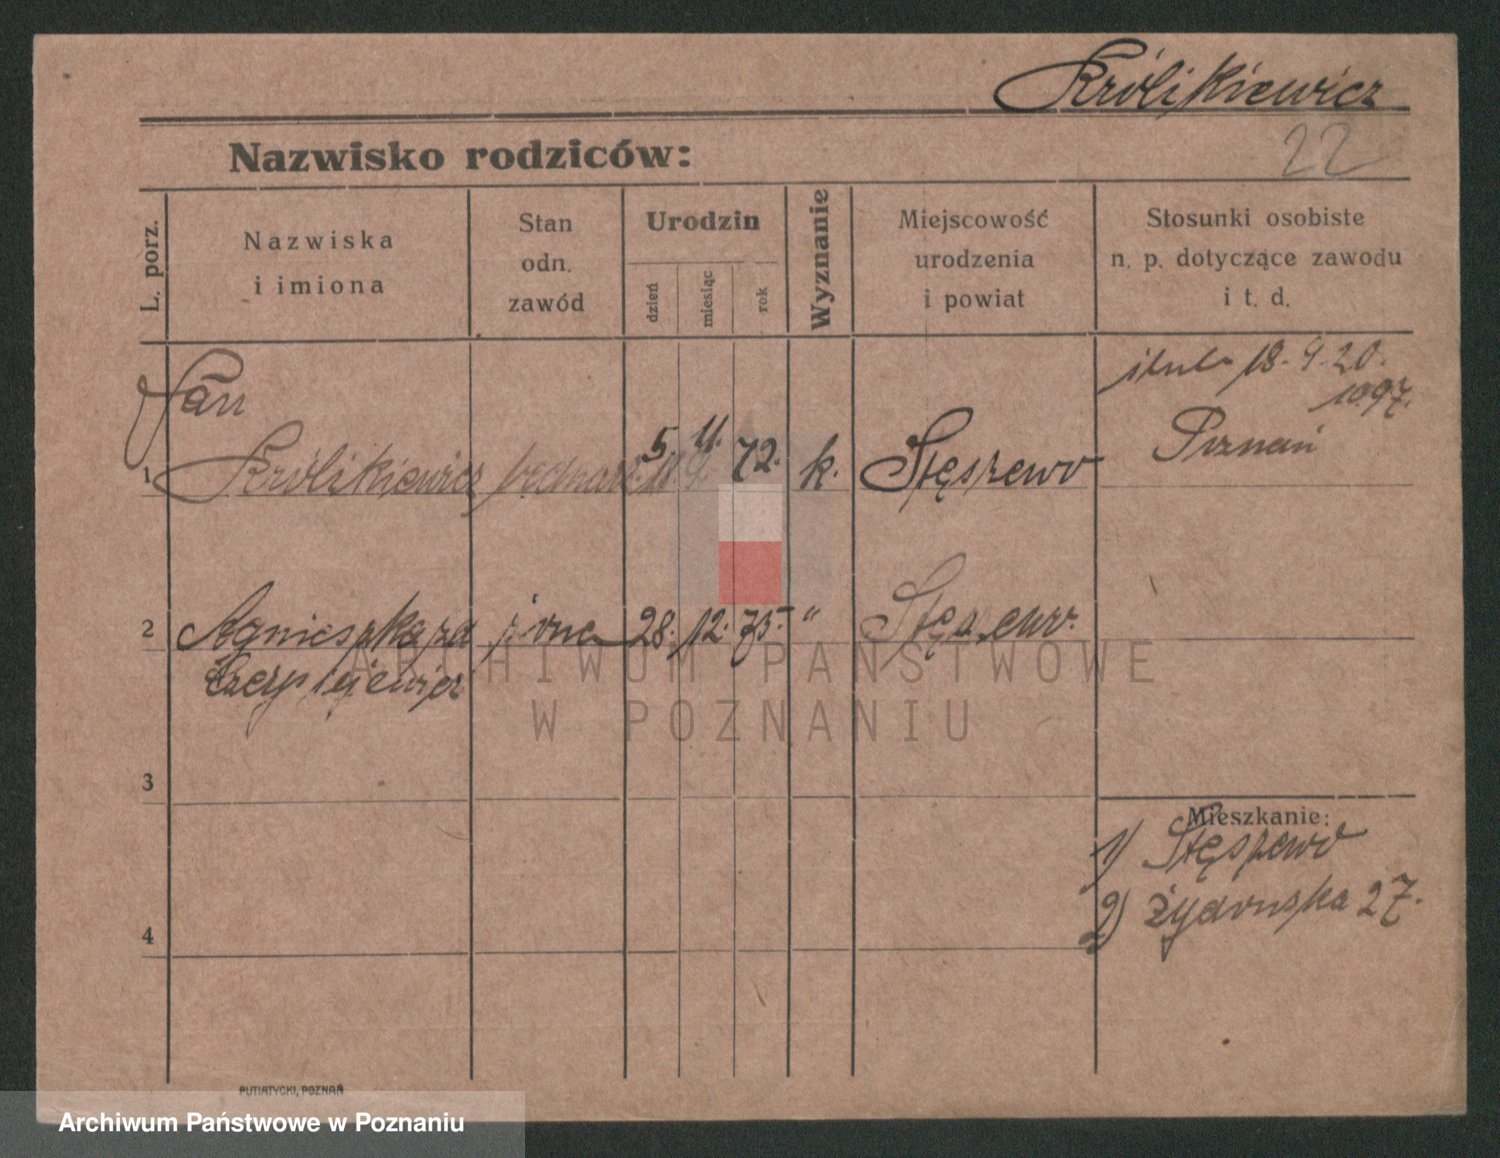 Królikiewicz
22
Nazwisko rodziców:
L. porz.
Nazwiska
i imiona
Stan
odn.
zawód
Urodzin
dzień
miesiąc
rok
Wyznanie
Miejscowość
urodzenia
i powiat
Stosunki osobiste
n. p. dotyczące zawodu
i t. d.
18. 9. 20.
1097.
Jan
1 Królikiewicz bednarz 5. 11. 72. k. Stęszewo Poznań
2 Agnieszka zd żona 28. 12. 75. " Stęszewo.
3
4
Mieszkanie:
1) Stęszewo
2) Żydowska 27.
ARCHIWUM PAŃSTWOWE
W POZNANIU
PUTIATYCKI, POZNAŃ
Archiwum Państwowe w Poznaniu